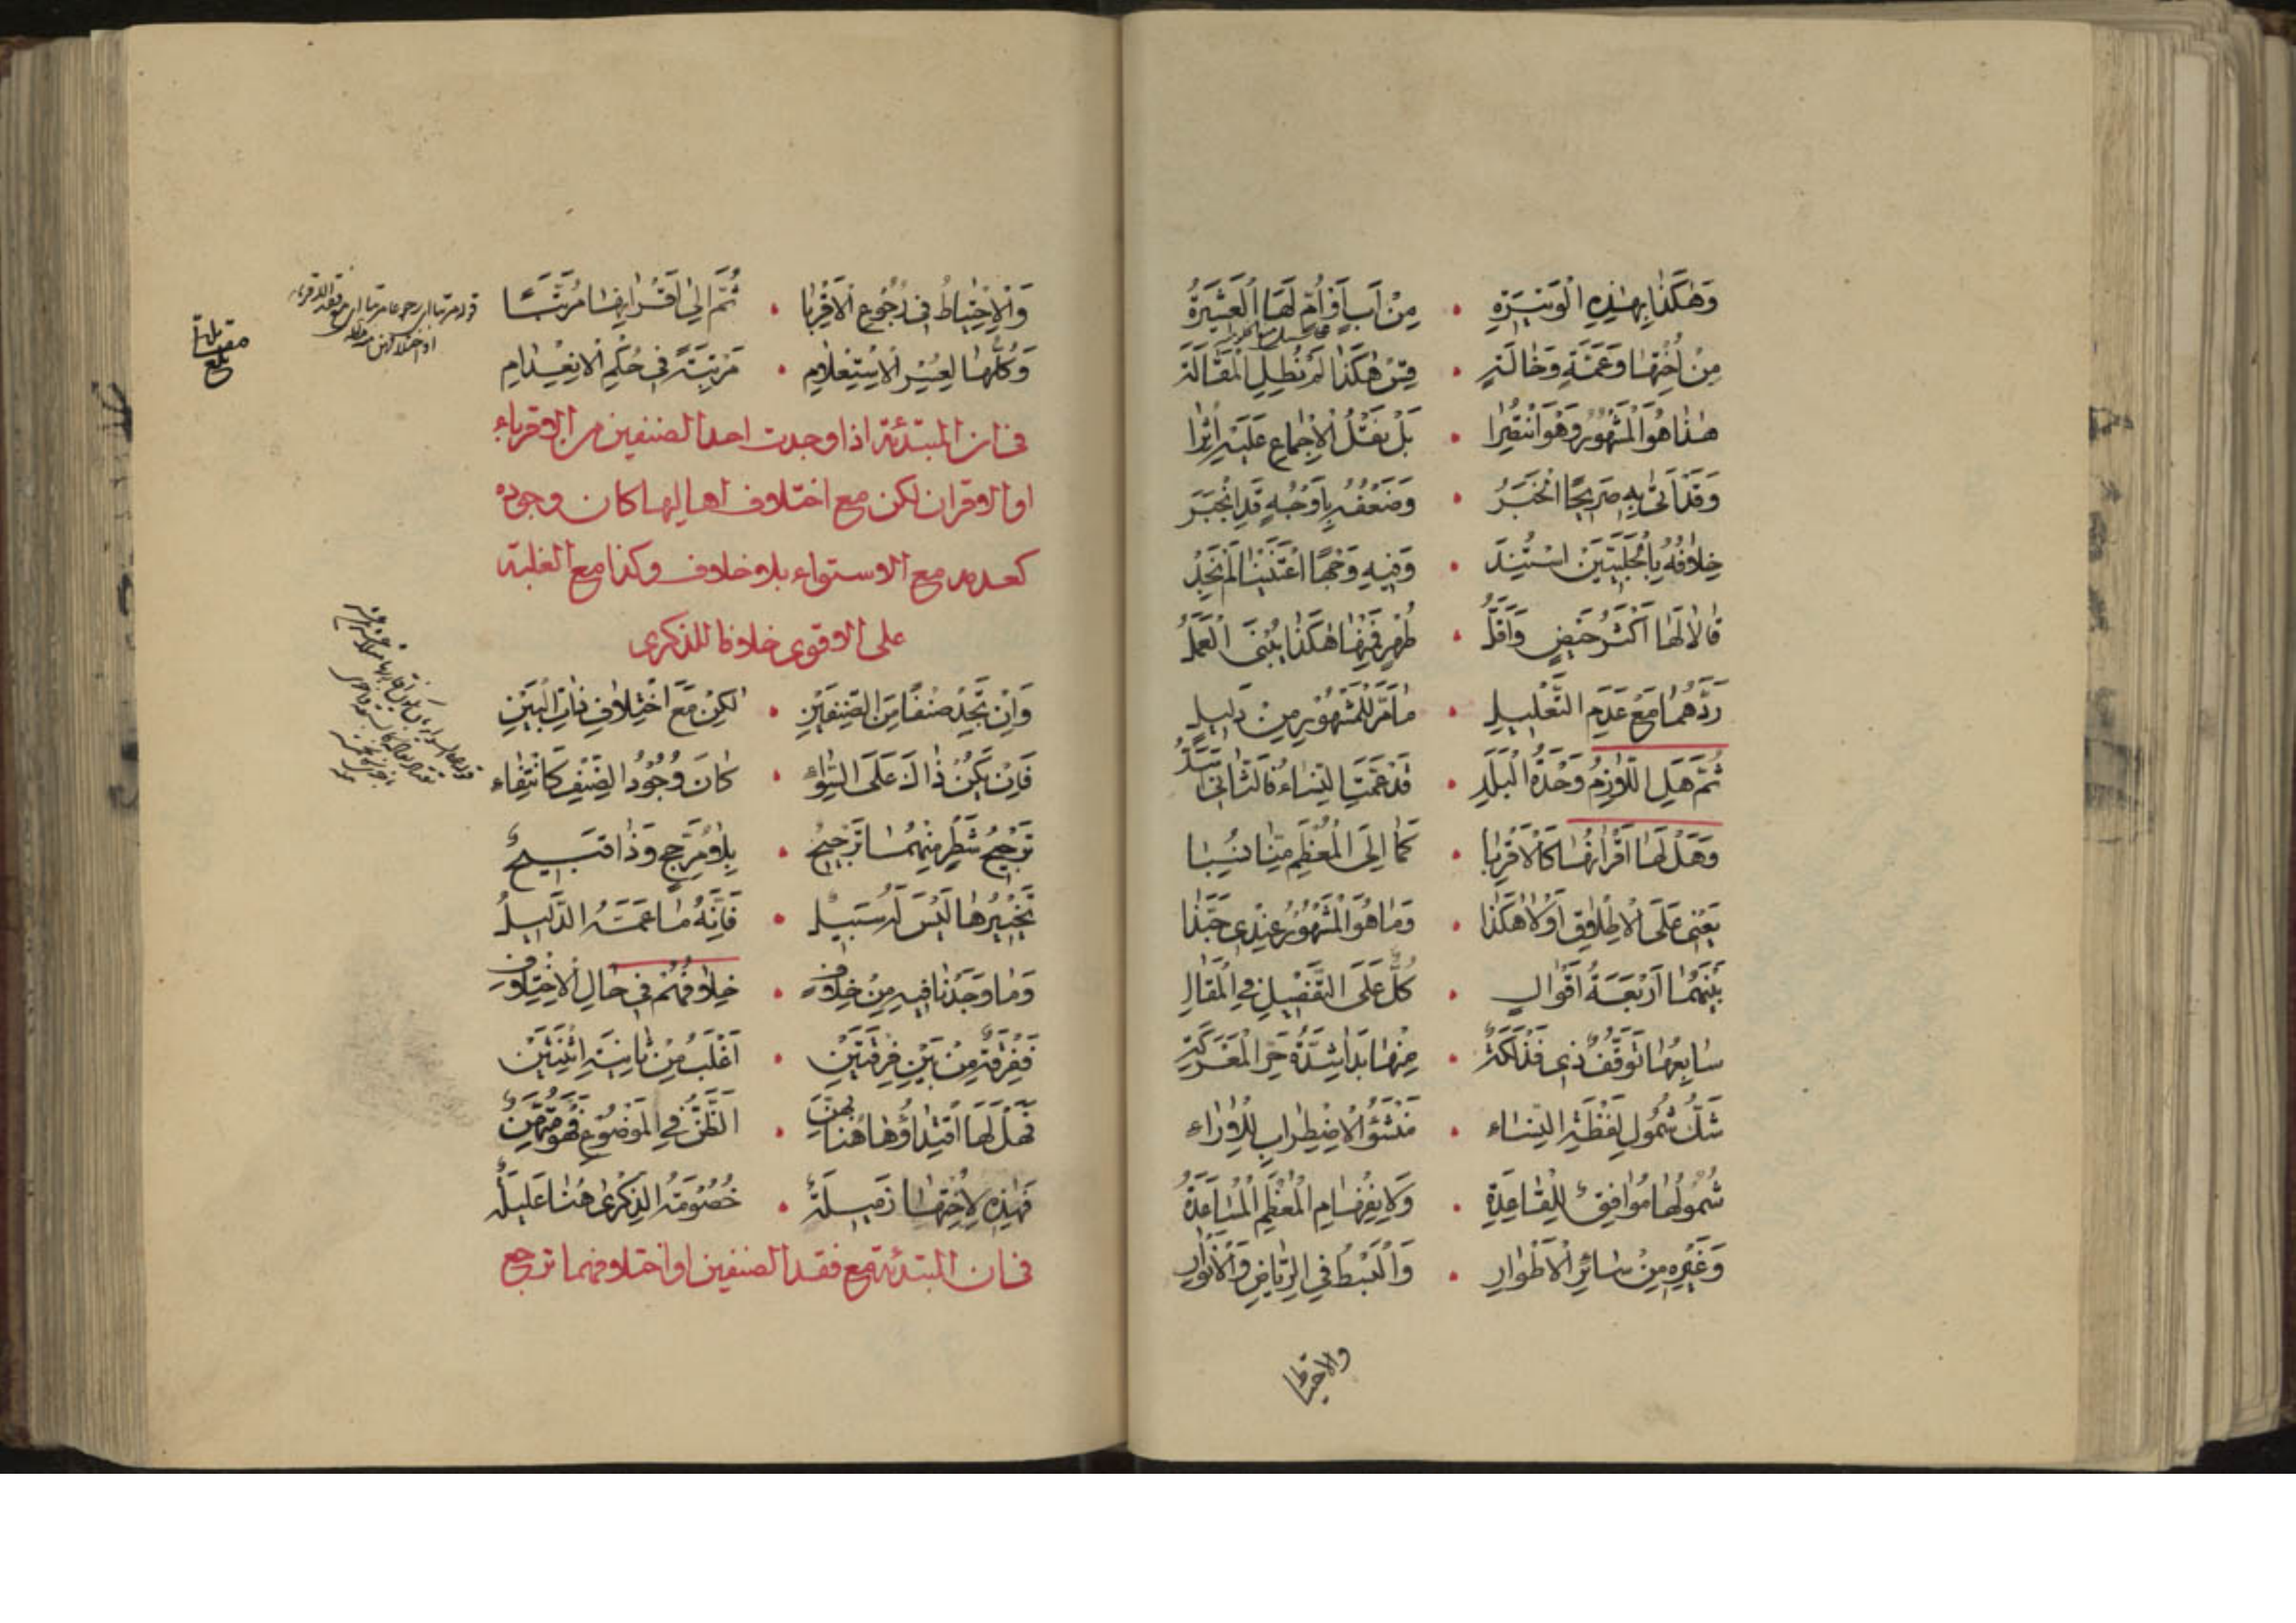 وَهٰكَذا بِهٰذِهِ الْوَتِيرَةِ • مِنْ أَبٍ أَوْ أُمٍّ لَهَا الْعَشِيرَةُ
مِنْ أُخْتِهَا وَعَمَّةٍ وَخَالَةٍ • قِسْ هٰكَذَا لَمْ نُطِلِ الْمَقَالَةَ
هٰذَا هُوَ الْمَشْهُورُ وَهُوَ انْتَصَرَا • بَلْ نَقْلُ الْإِجْمَاعِ عَلَيْهِ أُثِرَا
وَقَدْ أَتَى بِهِ صَرِيحًا الْخَبَرُ • وَضَعْفُهُ بِأَوْجُهٍ قَدِ انْجَبَرَ
خِلَافُهُ بِالْحَلَبِيَّيْنِ اسْتَنَدَ • وَفِيهِ وَجْهًا اعْتَنَيْنَا لَمْ نَجِدْ
قَالَا لَهَا أَكْثَرُ حَيْضٍ وَأَقَلُّ • طُهْرٍ فَفِيهَا هٰكَذَا يُبْنَى الْعَمَلُ
رَدُّهُمَا مَعَ عَدَمِ التَّعْلِيلِ • مَا مَرَّ لِلْمَشْهُورِ مِنْ دَلِيلٍ
ثُمَّ هَلِ اللَّازِمُ وَحْدَةُ الْبَلَدِ • قَدْ عَمَّتِ النِّسَاءُ فَالثَّانِي
وَهَلْ لَهَا أَقْرَانُهَا كَالْأَقْرِبَا • كَمَا إِلَى الْمُعْظَمِ مِنَّا نُسِبَا
يَعْنِي عَلَى الْإِطْلَاقِ أَوْ لَا هٰكَذَا • وَمَا هُوَ الْمَشْهُورُ عِنْدِي حَبَّذَا
بَيْنَهُمَا أَرْبَعَةُ أَقْوَالٍ • كُلٌّ عَلَى التَّفْصِيلِ فِي الْمَقَالِ
سَابِعُهَا تَوَقُّفٌ ذِي فَذْلَكَةٌ • مِنْهَا بَدَا شِدَّةُ حَرِّ الْمَعْرَكَةِ
شَكُّ شُمُولِ لَفْظَةِ النِّسَاءِ • مَنْشَؤُ الْاِضْطِرَابِ لِلْآرَاءِ
شُمُولُهَا مُوَافِقٌ لِلْقَاعِدَةِ • وَلِانْفِهَامِ الْمُعْظَمِ الْمُسَاعَدَةُ
وَغَيْرِهِ مِنْ سَائِرِ الْأَطْوَارِ • وَالْبَسْطُ فِي الرِّيَاضِ وَالْأَنْوَارِ
والاحتياط
وَالْاِحْتِيَاطُ فِي رُجُوعِ الْأَقْرِبَا • ثُمَّ إِلَى أَقْرَانِهَا مُرَتَّبًا
وَكُلُّهَا لِعُسْرِ الْاِسْتِعْلَامِ • مَرْتَبَةً فِي حُكْمِ الْاِنْعِدَامِ
فى ان المبتدئة اذا وجدت احد الصنفين من الاقرباء
او الاقران لكن مع اختلاف اهاليها كان وجوده
كعدمه مع الاستواء بلا خلاف وكذا مع الغلبة
على الاقوى خلافا للذكرى
وَإِنْ تَجِدْ صِنْفًا مِنَ الصِّنْفَيْنِ • لٰكِنْ مَعَ اخْتِلَافِ ذَاتِ الْبَيْنِ
فَإِنْ يَكُنْ ذَاكَ عَلَى السَّوَاءِ • كَانَ وُجُودُ الصِّنْفِ كَانْتِفَاءِ
تَرْجِيحُ شَطْرٍ مِنْهُمَا تَرْجِيحٌ • بِلَا مُرَجِّحٍ وَذَا قَبِيحٌ
تَخْيِيرُهَا لَيْسَ لَهُ سَبِيلٌ • فَإِنَّهُ مَا عَمَّهُ الدَّلِيلُ
وَمَا وَجَدْنَا فِيهِ مِنْ خِلَافٍ • خِلَافُهُمْ فِي حَالِ الْاِخْتِلَافِ
فَفِرْقَةٌ مِنْ بَيْنِ فِرْقَتَيْنِ • أَغْلَبُ مِنْ ثَانِيَةِ اثْنَتَيْنِ
فَهَلْ لَهَا اقْتِدَاؤُهَا هُنَا بِهِنَّ • الظَّنُّ فِي الْمَوْضُوعِ فَهُوَ مُمْتَهَنٌ
فَهٰذِهِ لِأُخْتِهَا زَمِيلَةٌ • خُصُومَةُ الذِّكْرَى هُنَا عَلِيلَةٌ
فى ان المبتدئة مع فقد الصنفين او اختلافهما ترجع
مقابلة
بلغ